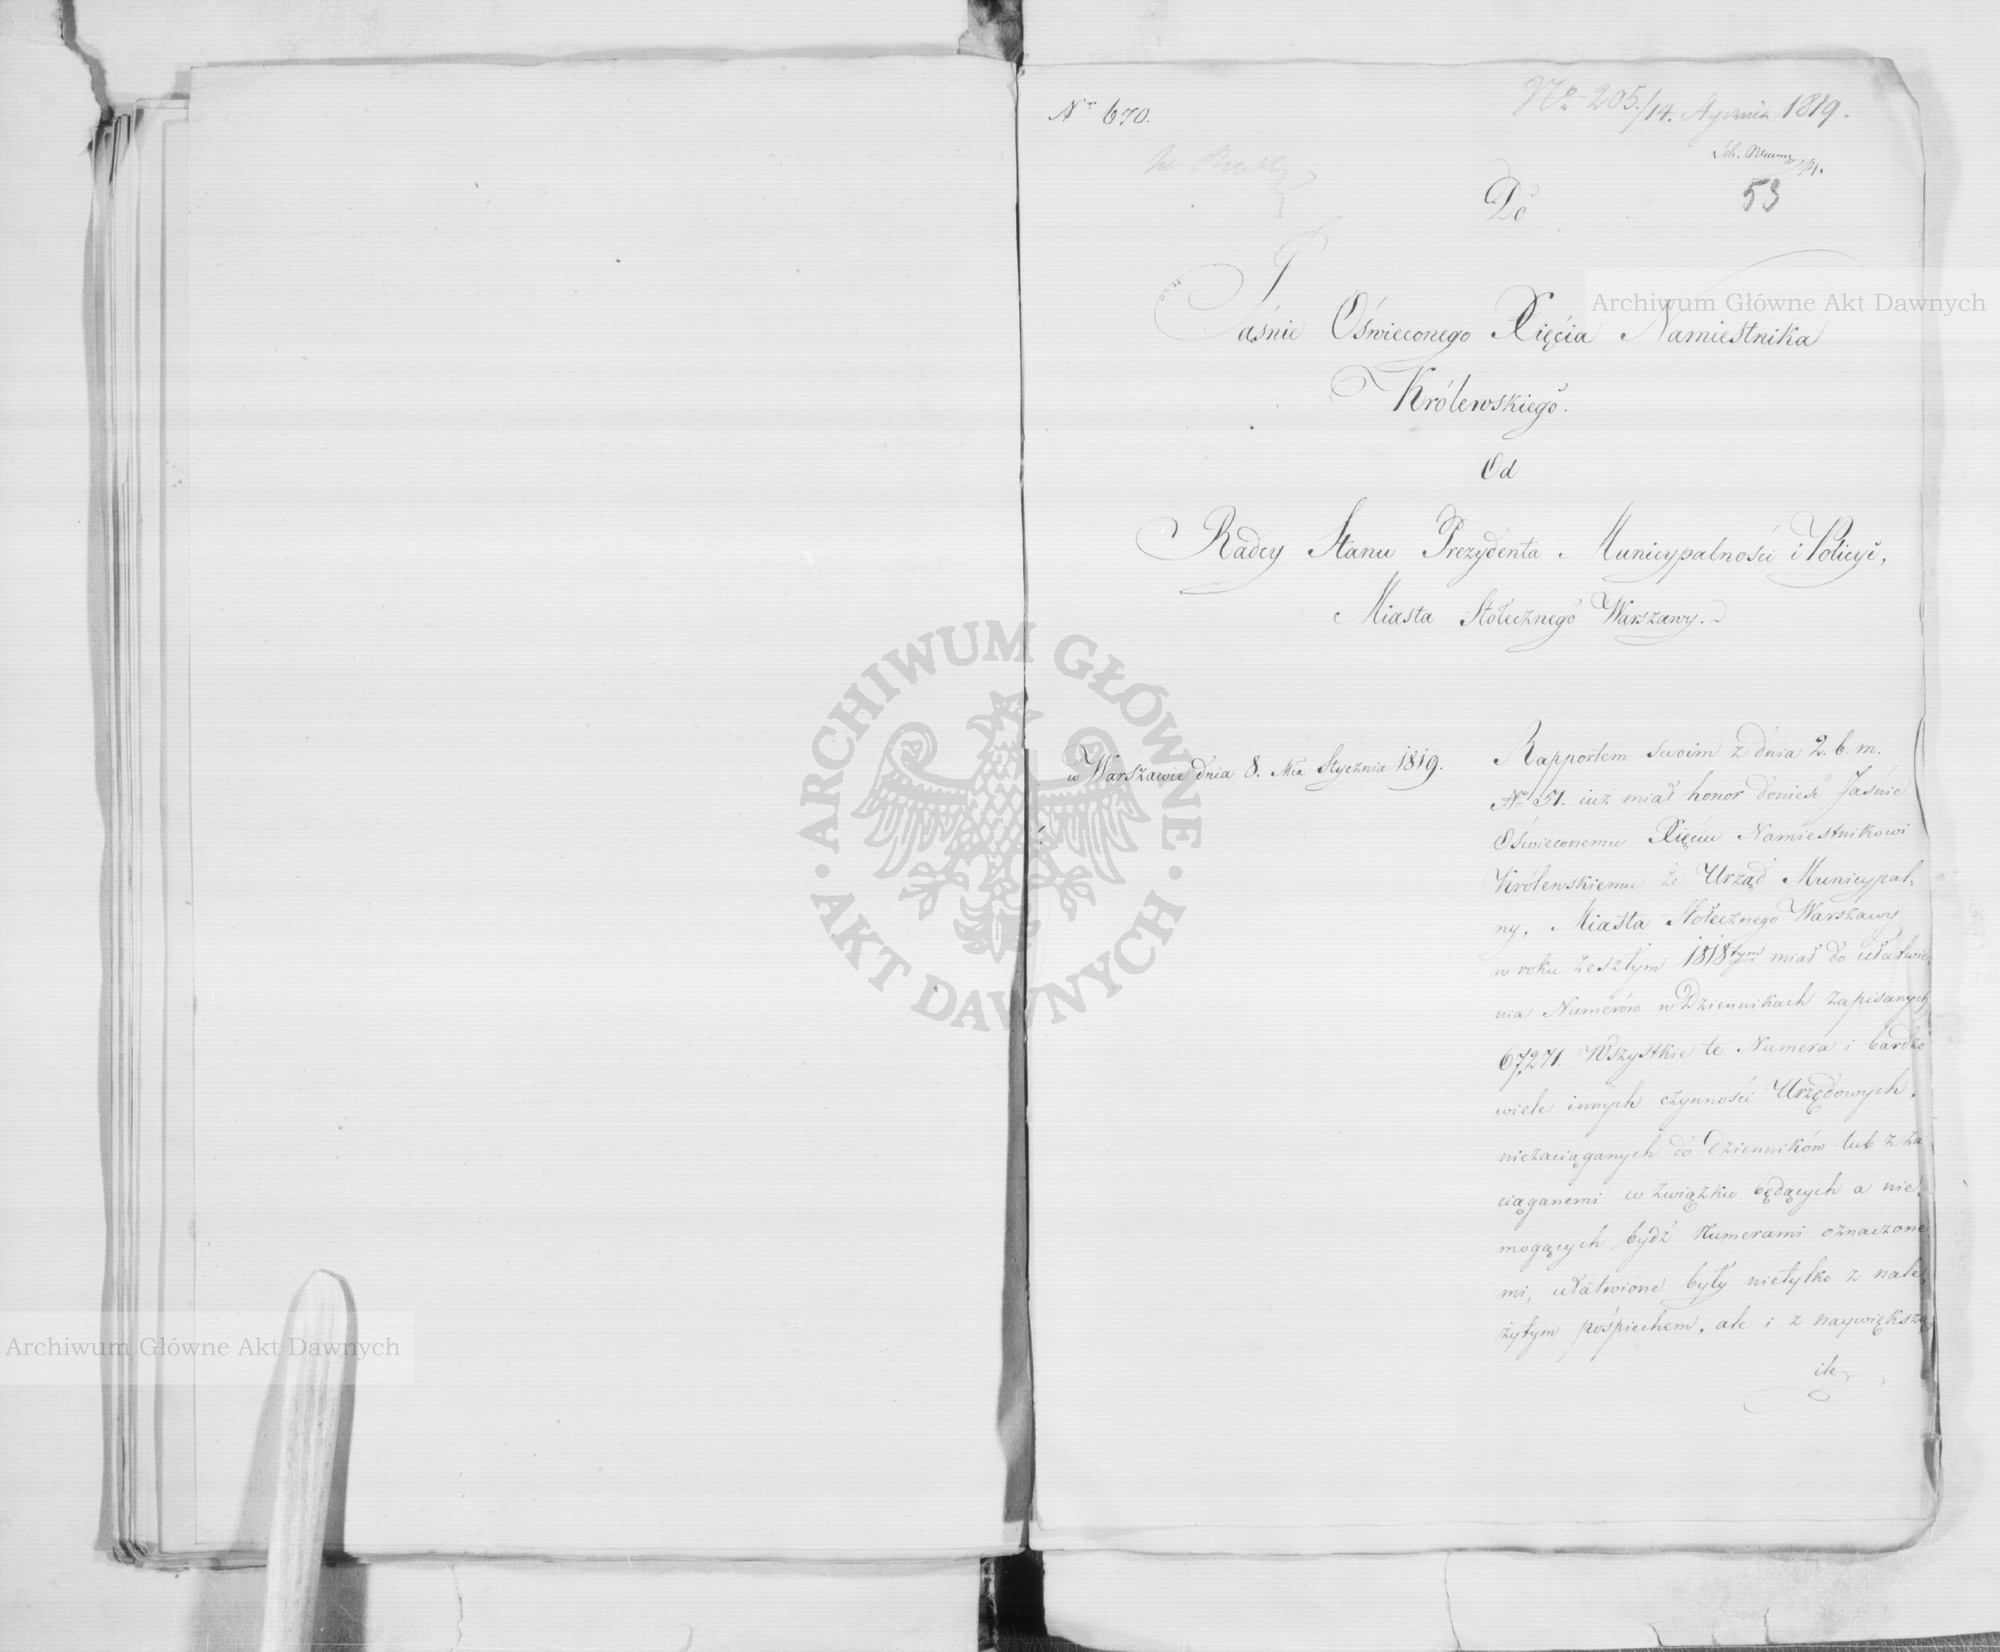 Nr 670.
No 205./14. Stycznia 1819.
53
Do
Jaśnie Oświeconego Xięcia Namiestnika
Królewskiego.
Od
Radcy Stanu Prezydenta Municypalności i Policyi,
Miasta Stołecznego Warszawy.
w Warszawie dnia 8. Mca Stycznia 1819.
Rapportem swoim z dnia 2. b. m.
No 51. iuż miał honor donieść Jaśnie
Oświeconemu Xięciu Namiestnikowi
Królewskiemu że Urząd Municypal-
ny, Miasta Stołecznego Warszawy
w roku zeszłym 1818tym miał do ułatwie-
nia Numerów w Dziennikach zapisanych
67,271. Wszystkie te Numera i bardzo
wiele innych czynności Urzędowych,
niezaciąganych do Dzienników lub z za
ciąganemi w związku będących a nie
mogących bydź Numerami oznaczone
mi, ułatwione były nietylko z nale-
żytym pośpiechem, ale i z naywiększą
ile
Archiwum Główne Akt Dawnych
ARCHIWUM GŁÓWNE
AKT DAWNYCH
Archiwum Główne Akt Dawnych